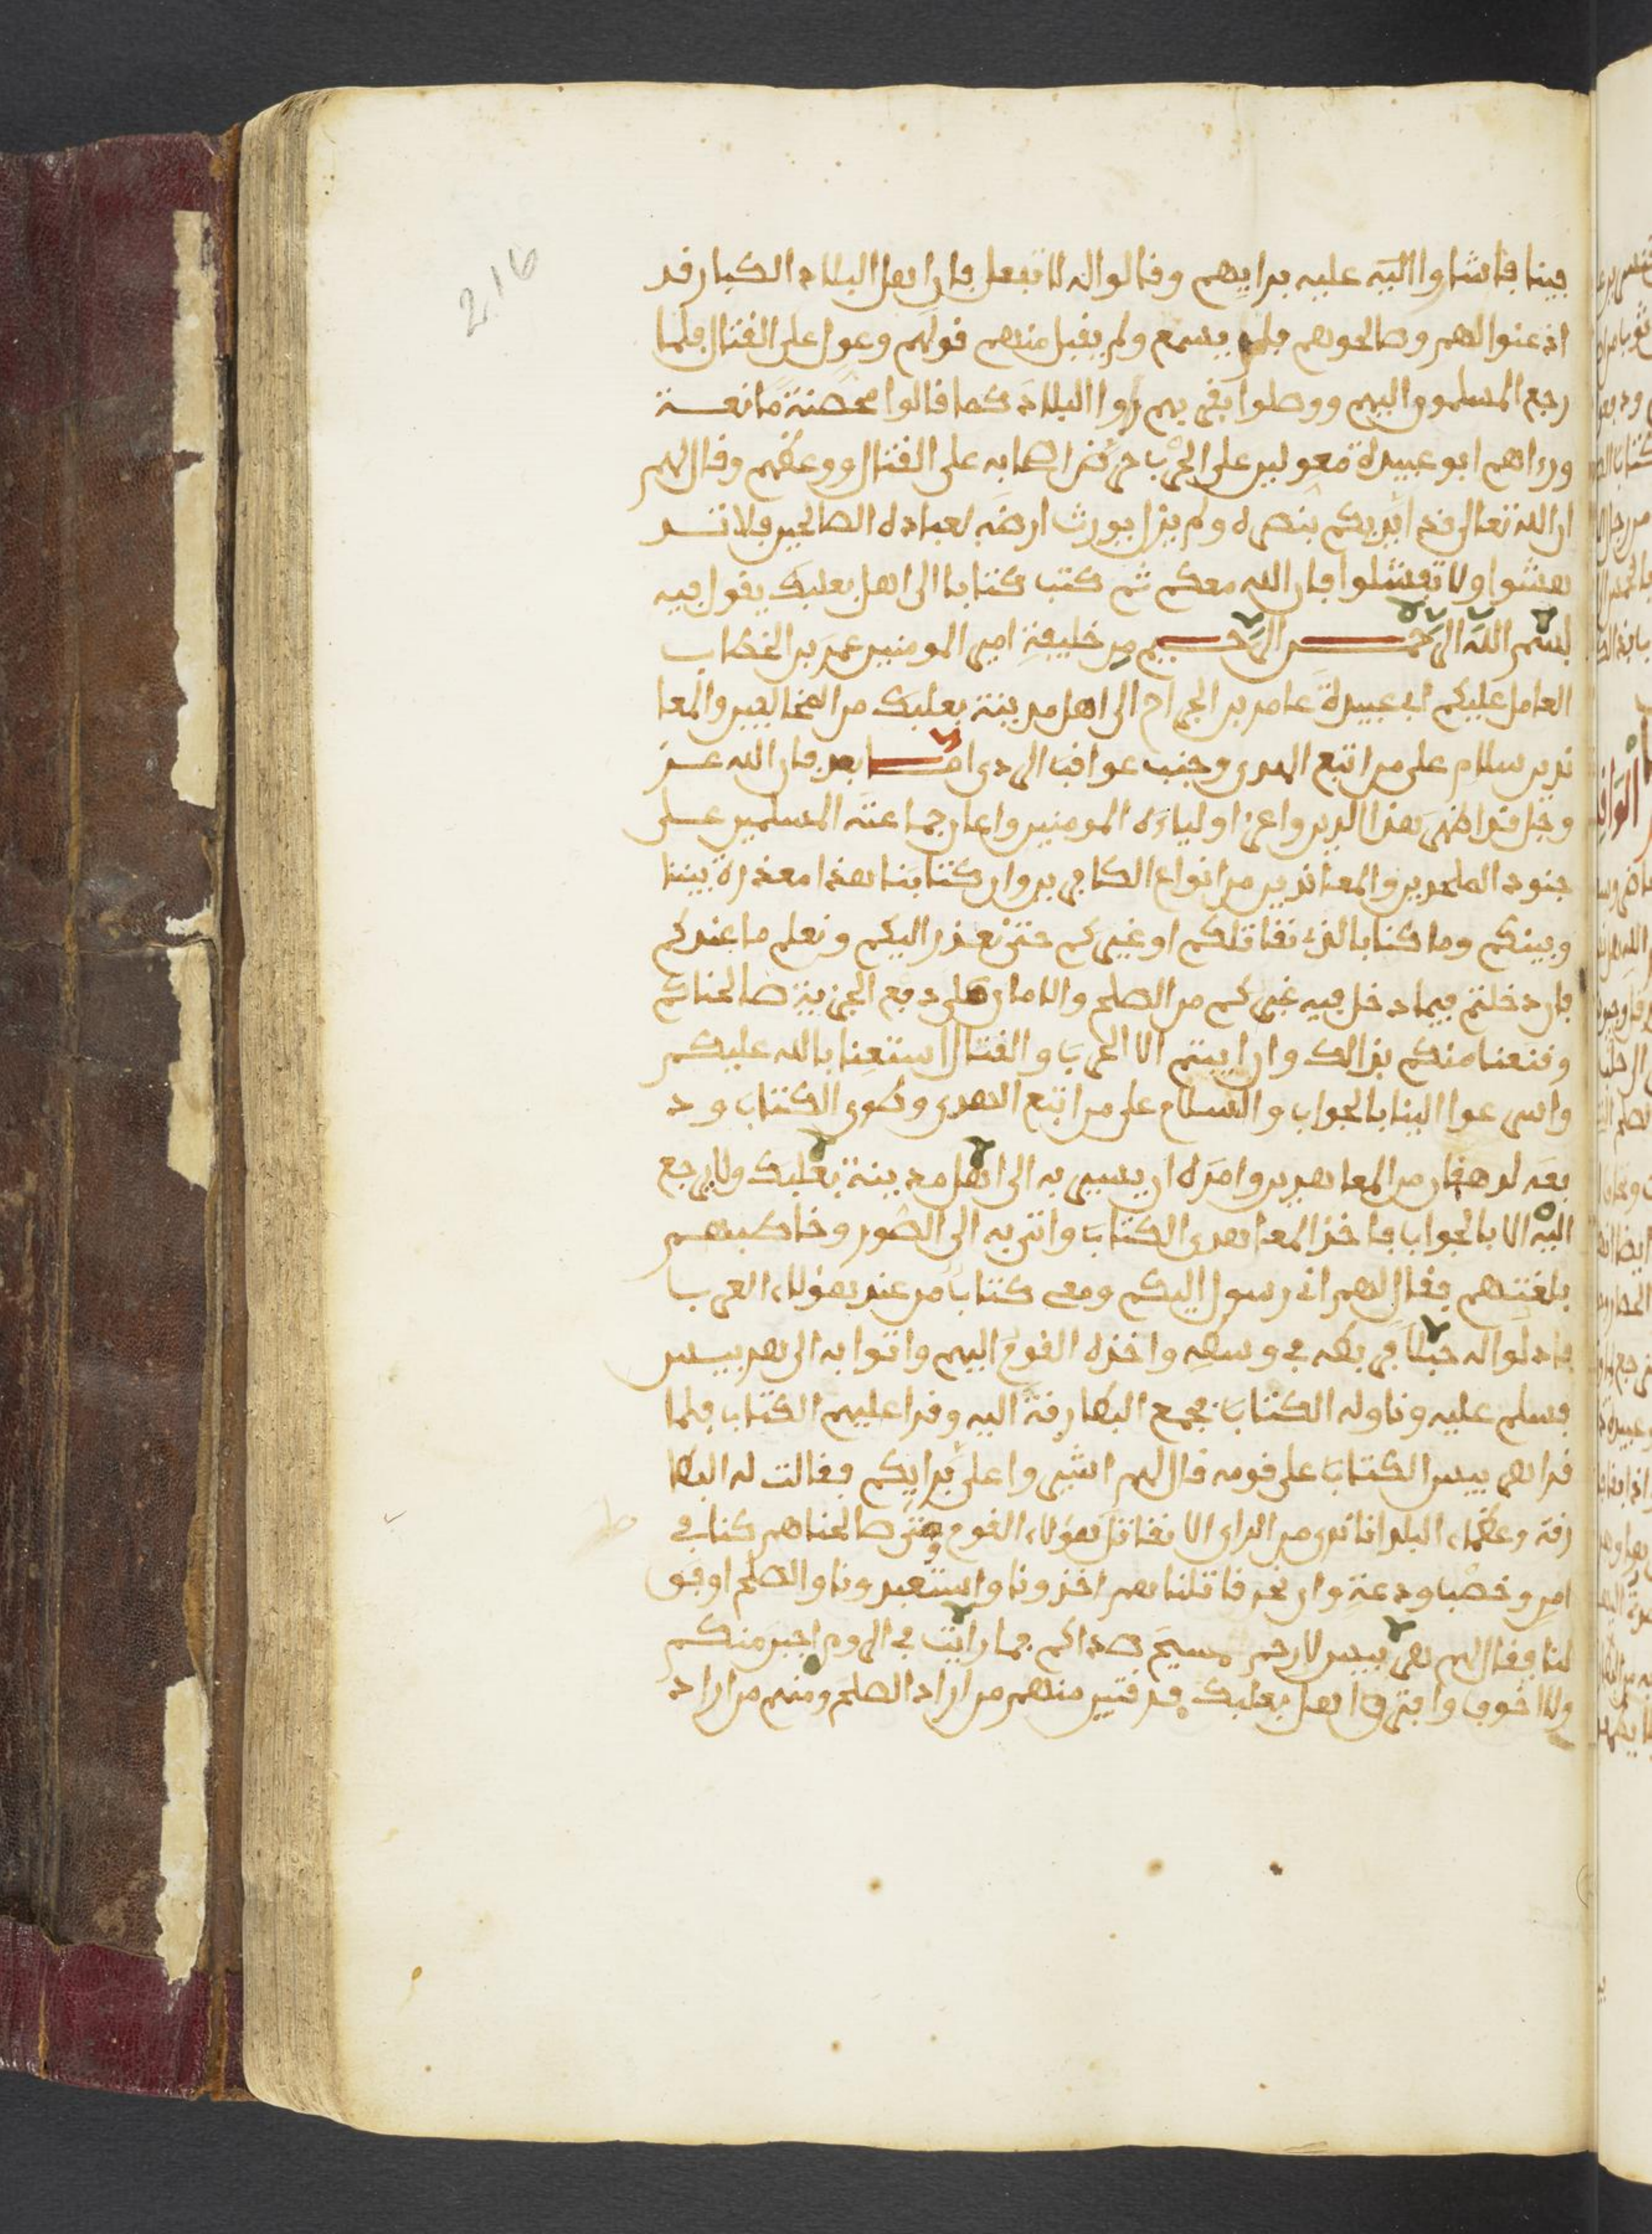 216
بينا فاشاروا اليه عليه برايهم وقالوا له لا تفعل فان اهل البلاد الكبار قد
اذعنوا لهم وصالحوهم فلم يسمع ولم يقبل منهم قولهم وعول على القتال فلما
رجع المسلمون اليهم ووصلوا بقربهم راوا البلاد كما قالوا محصنة مانعة
ورءاهم ابو عبيدة معولين على الحرب حرض اصحابه على القتال ووعظهم وقال لهم
ان الله تعالى قد ايدكم بنصره ولم يزل يورث ارضه لعباده الصالحين فلا تد
هشوا ولا تفشلوا فان الله معكم ثم كتب كتابا الى اهل بعلبك يقول فيه
بسم الله الرحمن الرحيم من خليفة امير المومنين عمر بن الخطاب
العامل عليكم ابى عبيدة عامر بن الجراح الى اهل مدينة بعلبك من المخالفين والمعا
ندين سلام على من اتبع الهدى وجنب عواقب الردى اما بعد فان الله عز
وجل قد اظهر هذا الدين واعز اولياءه المومنين واعان جماعته المسلمين على
جنود الملحدين والمعاندين من انواع الكافرين وان كتابنا هذا معذرة بيننا
وبينكم وما كنا بالذى نقاتلكم او غيركم حتى نعذر اليكم ونعلم ما عندكم
فان دخلتم فيما دخل فيه غيركم من الصلح والامان على دفع الجزية صالحناكم
وقنعنا منكم بذالك وان ابيتم الا الحرب والقتال استعنا بالله عليكم
واسرعوا الينا بالجواب والسلام على من اتبع الهدى وطوى الكتاب ود
فعه لدهقان من المعاهدين وامره ان يسير به الى اهل مدينة بعلبك ولا يرجع
اليه الا بالجواب فاخذ المعاهدى الكتاب واتى به الى الصور وخاطبهم
بلغتهم فقال لهم انى رسول اليكم ومعى كتاب من عند هؤلاء العرب
فادلوا له حبلا فربطه فى وسطه واخذه القوم اليهم واتوا به الى هربيس
فسلم عليه وناوله الكتاب فجمع البطارقة اليه وقرا عليهم الكتاب فلما
قرا هربيس الكتاب على قومه قال لهم اشيروا على برايكم فقالت له البطا
رقة وعظماء البلد انا نرى من الراى الا نقاتل هؤلاء القوم ومتى صالحناهم كنا فى
امن وخصب ودعة وان نحن قاتلناهم اخذونا واستعبدونا والصلح اوفق
لنا فقال لهم هربيس لا رحم مسيح صداكم فما رايت فى الروم اجبن منكم
ولا اخوف وافترق اهل بعلبك فرقتين منهم من اراد الصلح ومنهم من اراد